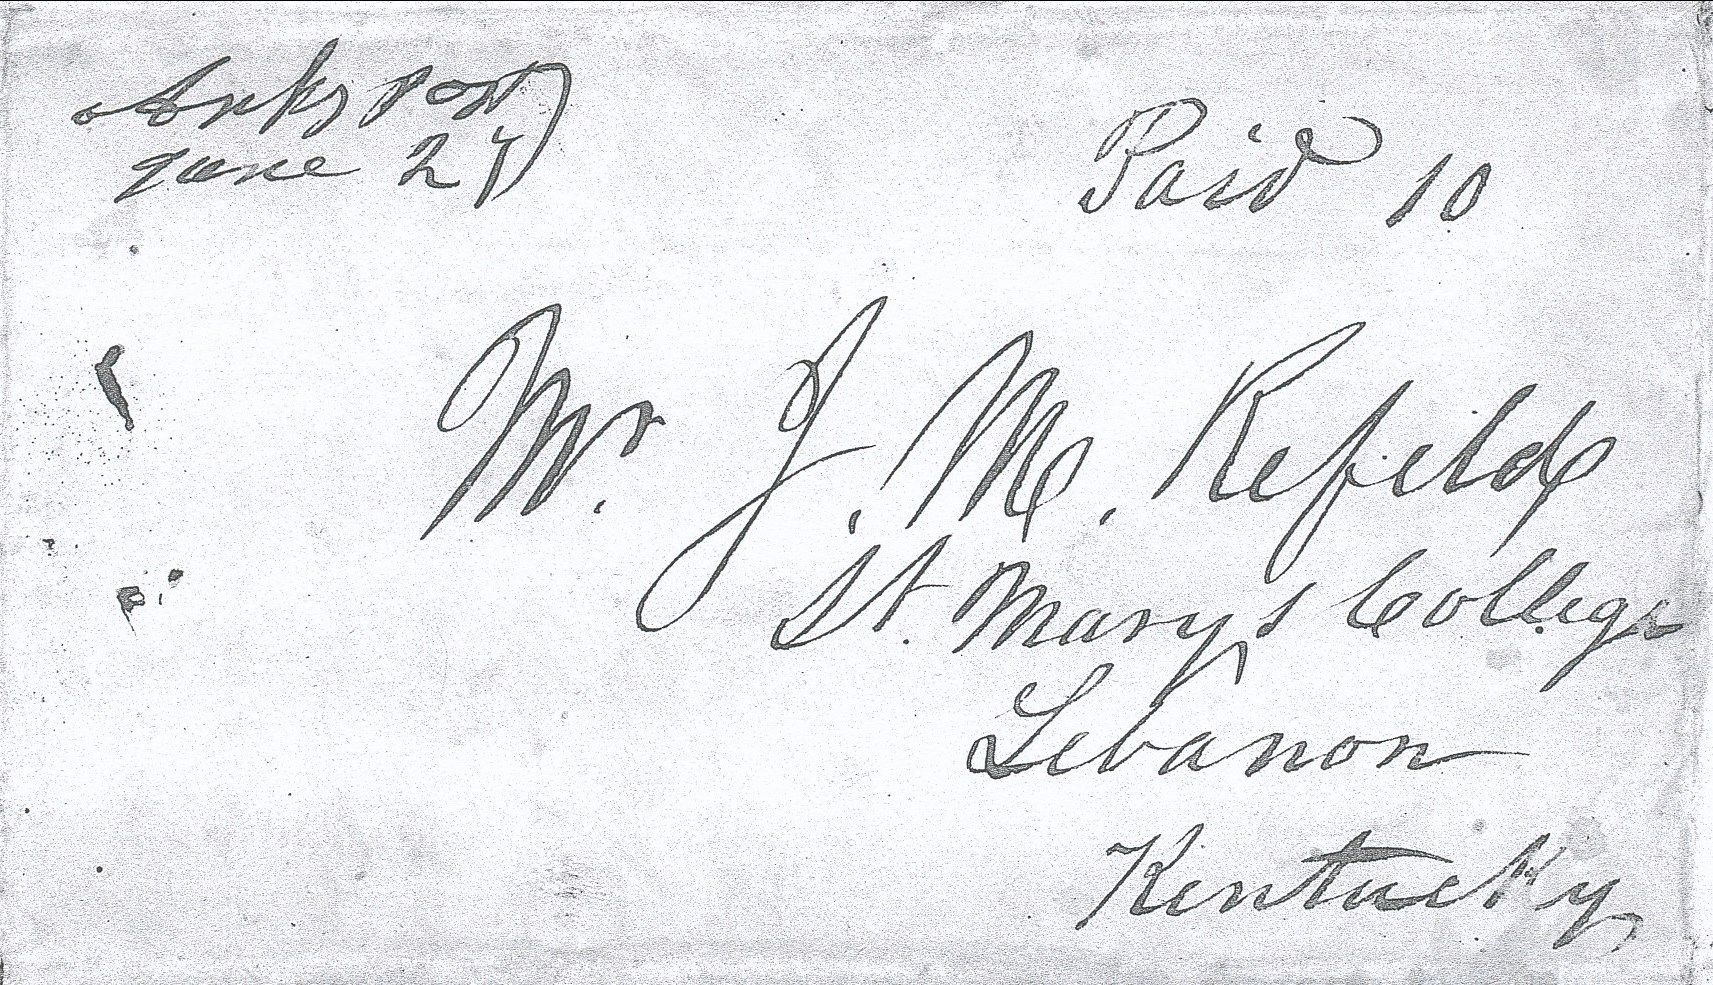 Arks Post
June 27
Paid 10
Mr. J. M. Kefeldt
St. Marys College
Lebanon
Kentucky